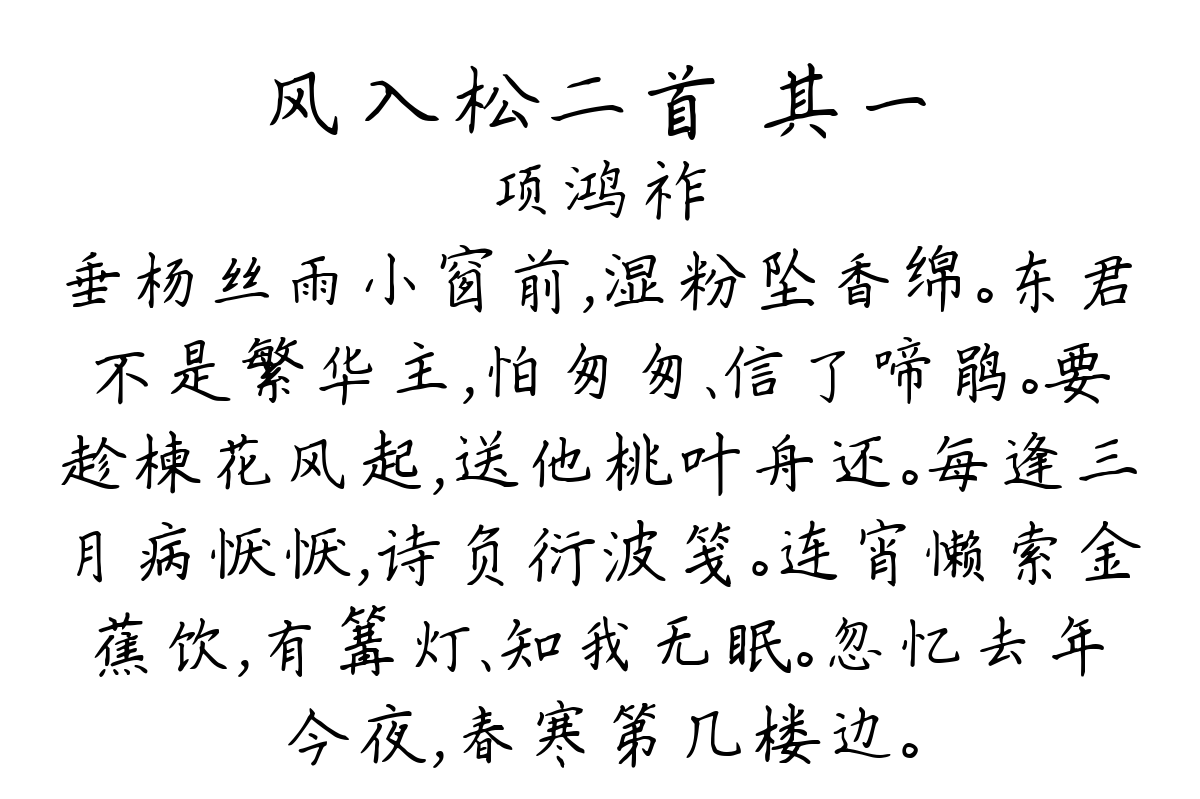 风入松二首 其一
项鸿祚
垂杨丝雨小窗前,湿粉坠香绵。东君
不是繁华主,怕匆匆、信了啼鹃。要
趁楝花风起,送他桃叶舟还。每逢三
月病恹恹,诗负衍波笺。连宵懒索金
蕉饮,有篝灯、知我无眠。忽忆去年
今夜,春寒第几楼边。